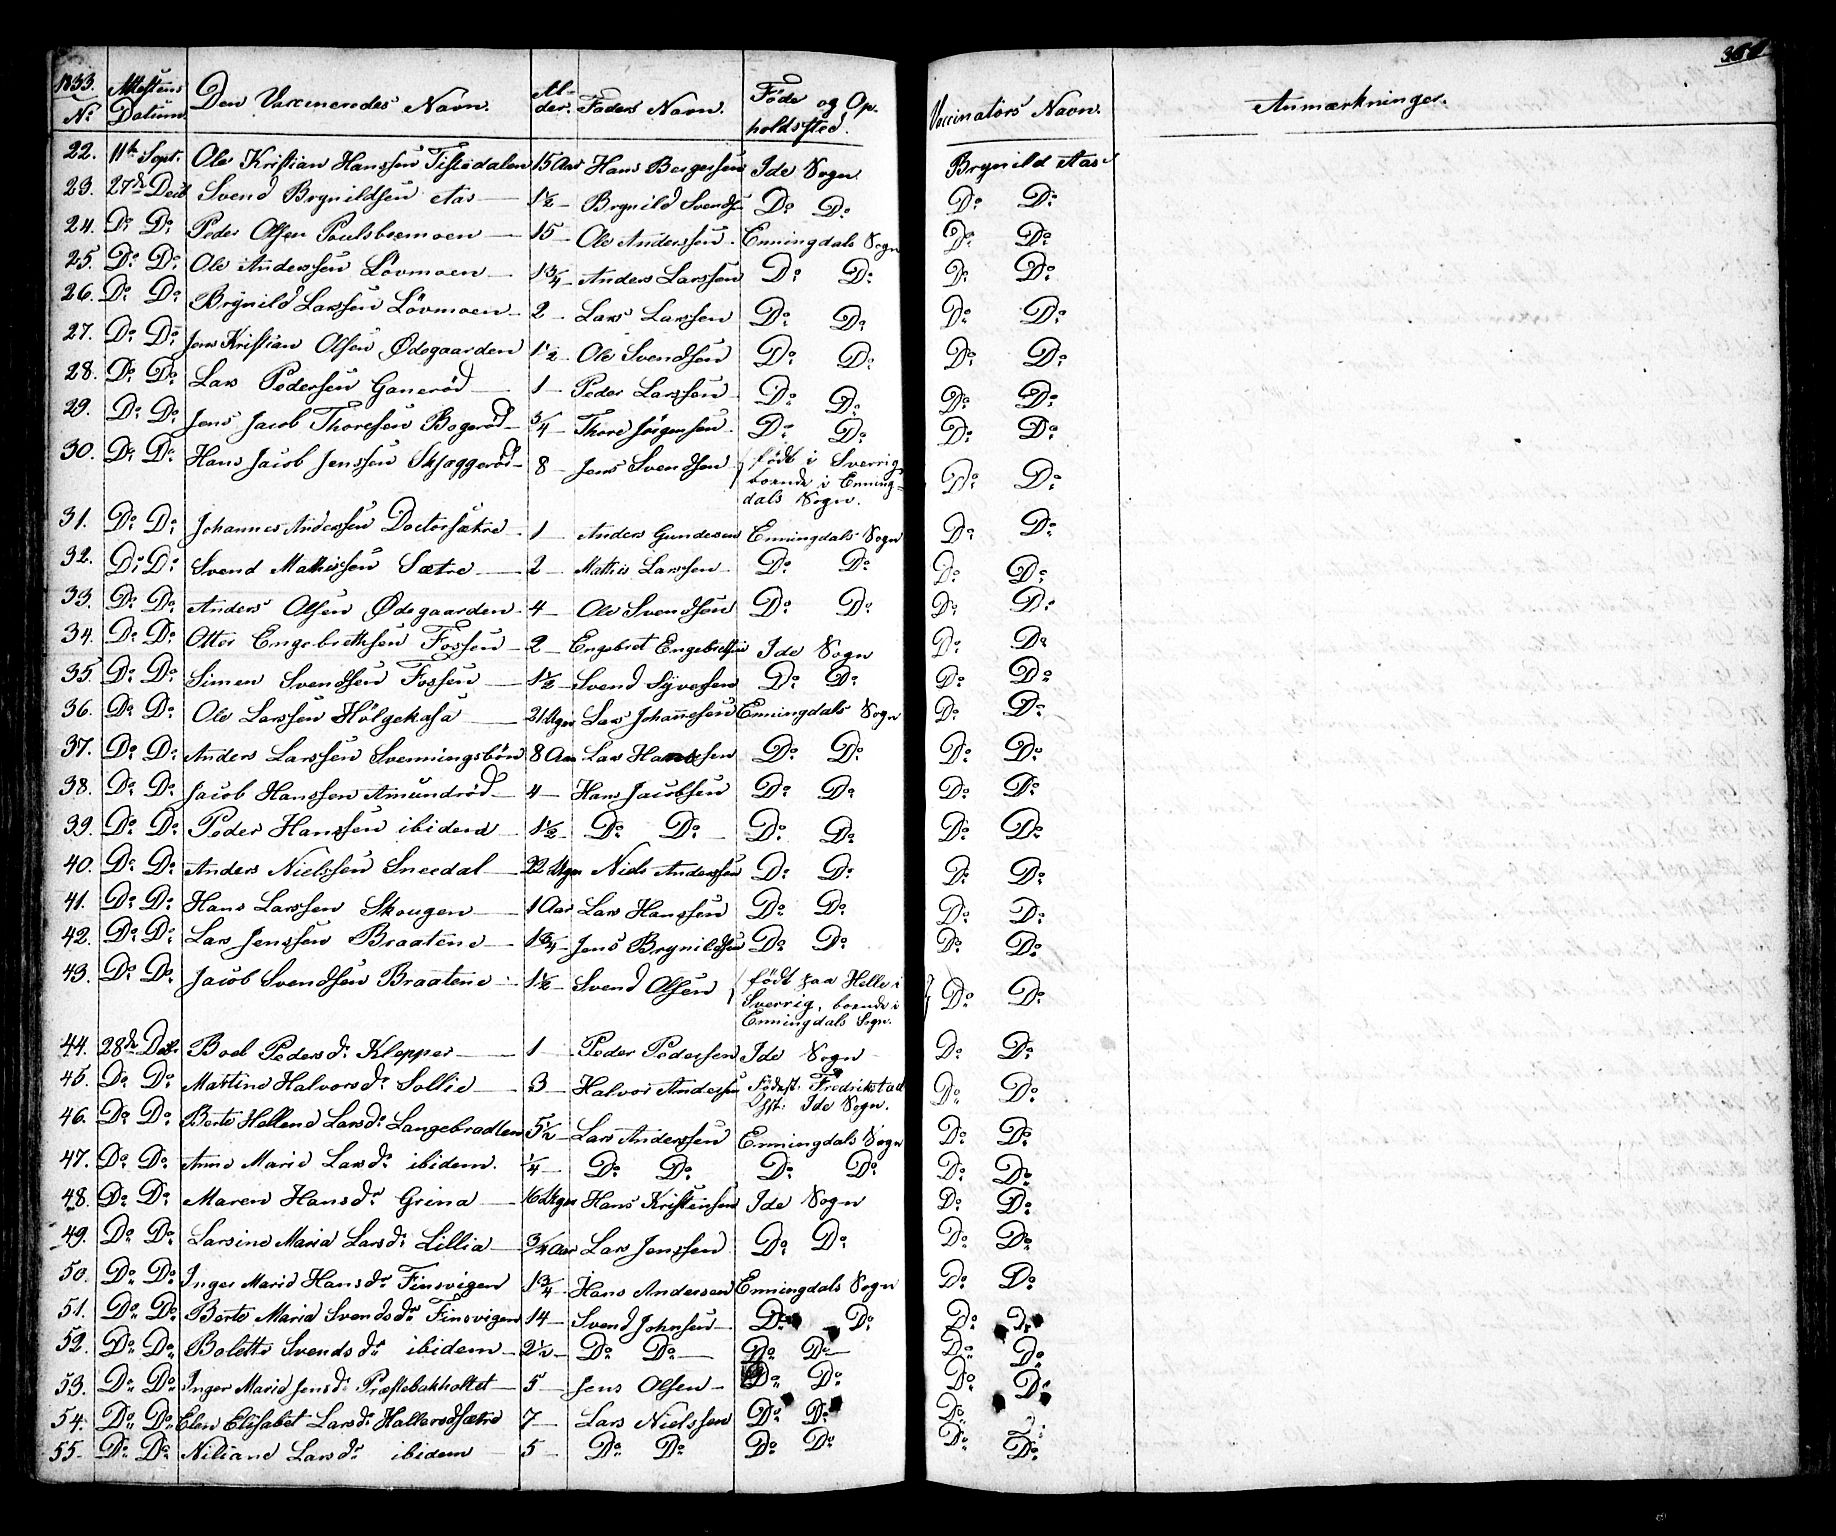 1833. Attestens Den Vaccineredes Navn. Al- Faders Navn. Føde og Op- Vaccinators Navn. Anmærkninger.
No Datum der. holdssted.
22. 11te Sept. Ole Kristian Hanssen Tistedalen 15 Aar Hans Bergersen Ide Sogn Brynild Aas
23. 27de Decb Svend Brynildsen Aas 1½ Brynild Svends Do Do Do Do
24. Do Do Peder Olsen Poulsboemoen 15 Ole Anderssen Enningdals Sogn Do Do
25. Do Do Ole Anderssen Lövmoen 1¾ Anders Larssen Do Do Do Do
26. Do Do Brynild Larssen Lövmoen 2 Lars Larssen Do Do Do Do
27. Do Do Jens Kristian Olsen Ødegaarden 1½ Ole Svendsen Do Do Do Do
28. Do Do Lars Pedersen Ganerød 1 Peder Larssen Do Do Do Do
29. Do Do Jens Jacob Thoresen Bogerød ¾ Thore Jörgensen Do Do Do Do
30. Do Do Hans Jacob Jenssen Skjæggerød 8 Jens Svendsen født i Sverrig, Do Do
boende i Enning-
dals Sogn.
31. Do Do Johannes Anderssen Doctorsætre 1 Anders Gundersen Enningdals Sogn Do Do
32. Do Do Svend Mathissen Sætre 2 Mathis Larssen Do Do Do Do
33. Do Do Anders Olsen Ødegaarden 4 Ole Svendsen Do Do Do Do
34. Do Do Otter Engebrethsen Fossen 2 Engebret Engebretsen Ide Sogn Do Do
35. Do Do Simen Svendsen Fossen 1½ Svend Syversen Do Do Do Do
36. Do Do Ole Larssen Hölgekasa 31 Uger Lars Johannesen Enningdals Sogn Do Do
37. Do Do Anders Larssen Svenningsbön 8 Aar Lars Hanssen Do Do Do Do
38. Do Do Jacob Hanssen Amundrød 4 Hans Jacobsen Do Do Do Do
39. Do Do Peder Hanssen ibidem 1½ Do Do Do Do Do Do
40. Do Do Anders Nielssen Sneedal 22 Uger Niels Anderssen Do Do Do Do
41. Do Do Hans Larssen Skougen 1 Aar Lars Hanssen Do Do Do Do
42. Do Do Lars Jenssen Braatene 1¾ Jens Brynildsen Do Do Do Do
43. Do Do Jacob Svendsen Braatene 1½ Svend Olsen født paa Helle i Do Do
Sverrig, boende i
Enningdals Sogn.
44. 28de Decb. Boel Pedersdr Klepper 1 Peder Pedersen Ide Sogn Do Do
45. Do Do Martine Halvorsdr Sollie 3 Halvor Andersen Fødest. Fredrikstad Do Do
Ide Sogn.
46. Do Do Berte Hellene Larsdr Langebradten 5½ Lars Anderssen Enningdals Sogn Do Do
47. Do Do Anne Marie Larsdr ibidem. ¼ Do Do Do Do Do Do
48. Do Do Maren Hansdr Grina 16 Uger Hans Kristensen Ide Sogn Do Do
49. Do Do Larsine Maria Larsdr Lillia ¾ Aar Lars Jenssen Do Do Do Do
50. Do Do Inger Marie Hansdr Finsvigen 1¾ Hans Andersen Enningdals Sogn Do Do
51. Do Do Berte Maria Svendsdr Finsvigen 14 Svend Johnsen Do Do Do Do
52. Do Do Bolette Svendsdr ibidem 2½ Do Do Do Do Do Do
53. Do Do Inger Marie Jensdr Præstebakholtet 5 Jens Olsen Do Do Do Do
54. Do Do Elen Elisabet Larsdr Hallerødsætre 7 Lars Nielssen Do Do Do
55. Do Do Niliane Larsdr ibidem 5 Do Do Do Do Do Do